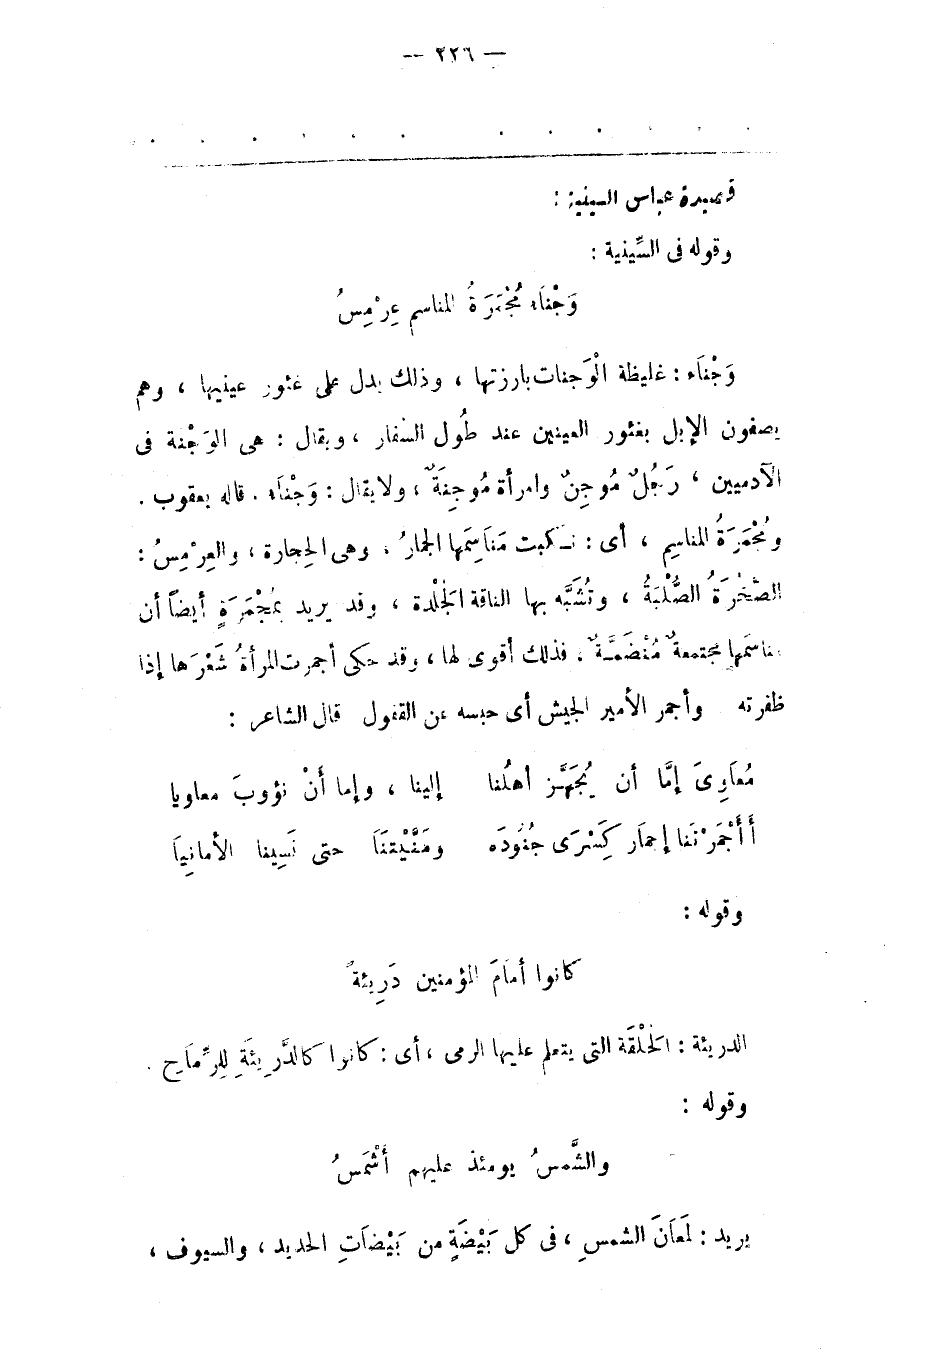 — ٢٢٦ —
قصيدة عباس السينية :
وقوله فى السِّينية :
وَجْنَاء مُجْمَرَةُ المناسم عِرْمِسُ
وَجْنَاء : غليظة الْوَجنات بارزتها ، وذلك يدل على غئور عينيها ، وهم
يصفون الإبل بغئور العينين عند طُول السفار ، ويقال : هى الوَجْنة فى
الآدميين ، رَجُلٌ مُوجِنٌ وامرأة مُوجِنَةٌ ، ولا يقال : وَجْنَاء . قاله يعقوب .
ومُجْمَرَةُ المناسِم ، أى : نكبت مَنَاسِمَها الجمارُ ، وهى الحِجارة ، والعِرْمِسُ :
الصَّخْرَةُ الصُّلْبَةُ ، وتُشَبَّه بها الناقة الجَلْدة ، وقد يريد بمُجْمَرَةٍ أيضاً أن
مناسمَها مجتمعةٌ مُنْضَمَّةٌ . فذلك أقوى لها ، وقد حكى أجمرت المرأةُ شَعْرَها إذا
ظفرته وأجمر الأمير الجيش أى حبسه عن القفول قال الشاعر :
مُعَاوِىَ إمَّا أن يُجَهِّـز أهلُنا إلينا ، وإما أَنْ نؤوبَ معاويا
أَأَجْمَرْتَنا إجمَار كِسْرَى جُنُودَه ومَنَّيْتَنَا حتى نَسِينا الأمانِيَا
وقوله :
كانوا أمامَ المؤمنين دَرِيئةً
الدريئة : الحَلْقَة التى يتعلم عليها الرمى ، أى : كانوا كالدَّرِيئَةِ لِلرِّمَاحِ .
وقوله :
والشَّمسُ يومئذ عليهم أَشْمَسُ
يريد : لَمَعَانَ الشمسِ ، فى كل بَيْضَةٍ من بَيْضَاتِ الحديد ، والسيوف ،